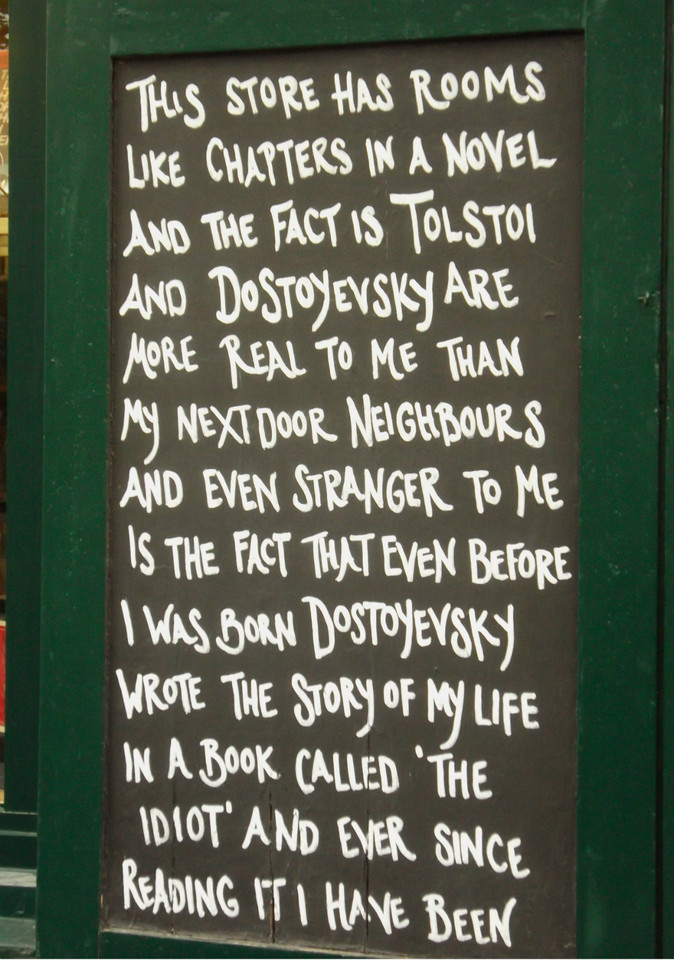 THIS STORE HAS ROOMS
LIKE CHAPTERS IN A NOVEL
AND THE FACT IS TOLSTOI
AND DOSTOYEVSKY ARE
MORE REAL TO ME THAN
MY NEXT DOOR NEIGHBOURS
AND EVEN STRANGER TO ME
IS THE FACT THAT EVEN BEFORE
I WAS BORN DOSTOYEVSKY
WROTE THE STORY OF MY LIFE
IN A BOOK CALLED 'THE
IDIOT' AND EVER SINCE
READING IT I HAVE BEEN